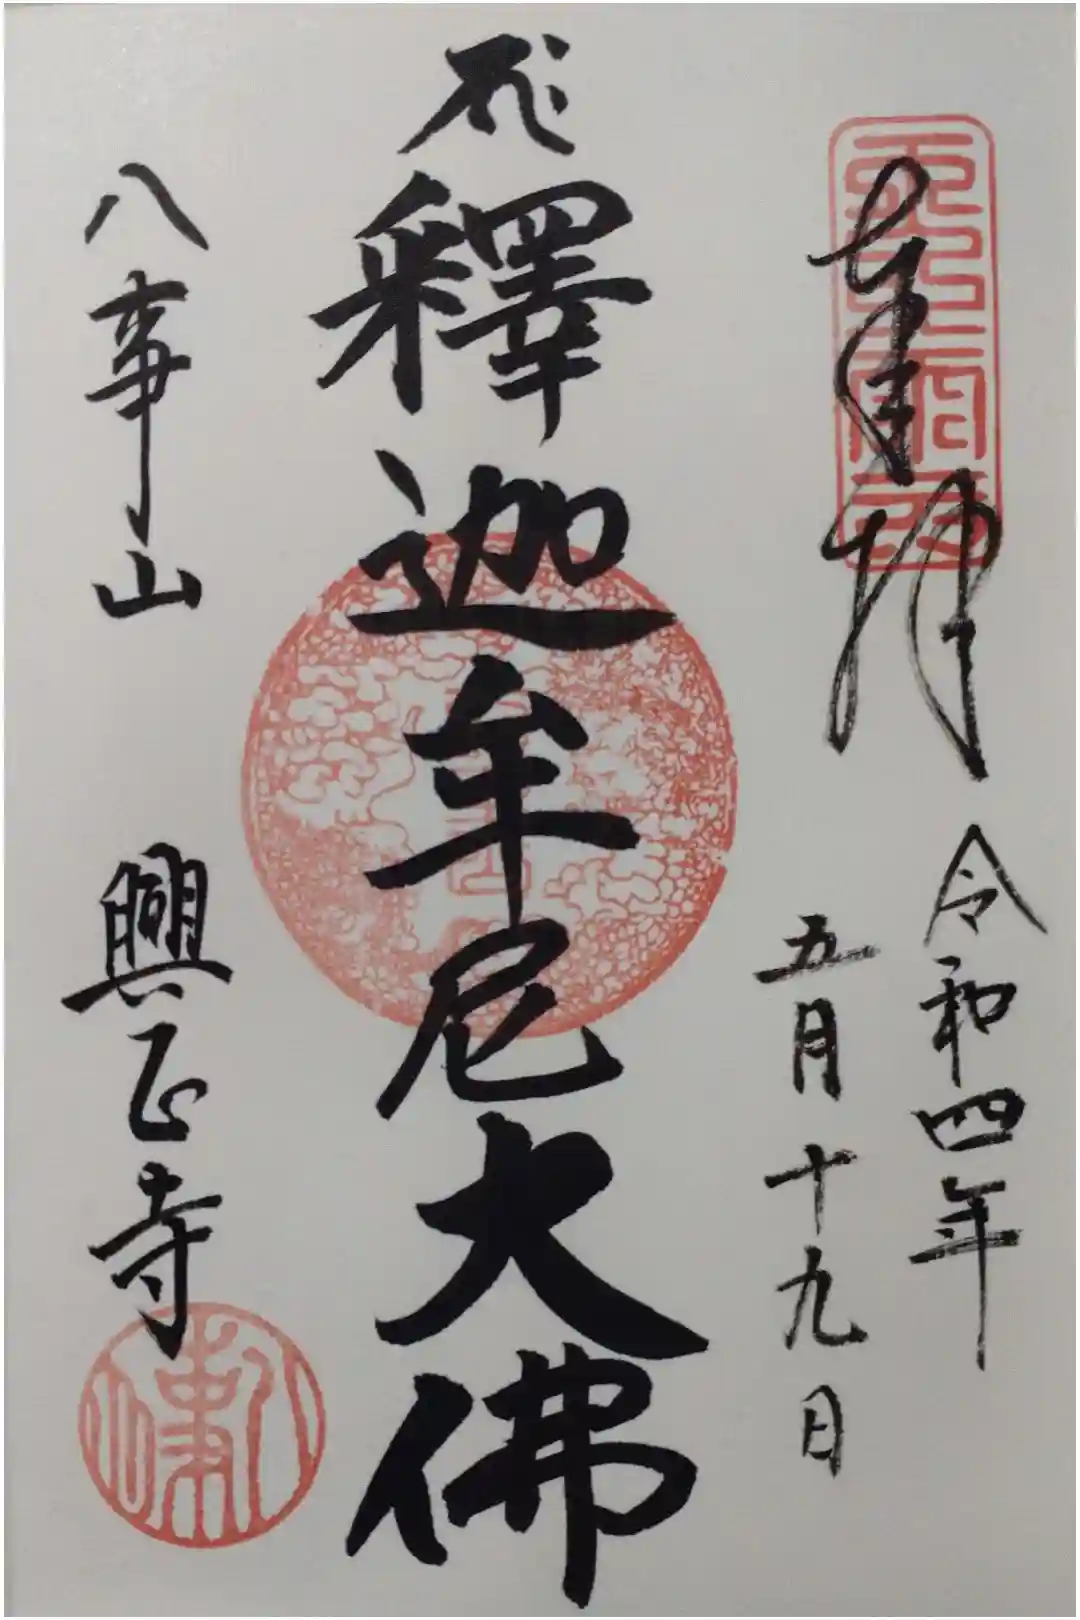 奉拝
令和四年
五月十九日
釋迦牟尼大佛
八事山
興正寺
八事山